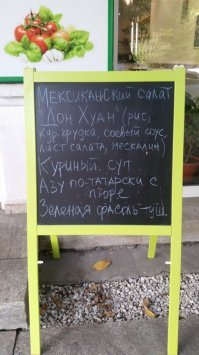 Мексиканский салат
"Дон Хуан" (рис,
кур. грудка, соевый соус,
лист салата, мескалин)
Куриный суп
Азу по-татарски с
пюре
Зеленая фасоль